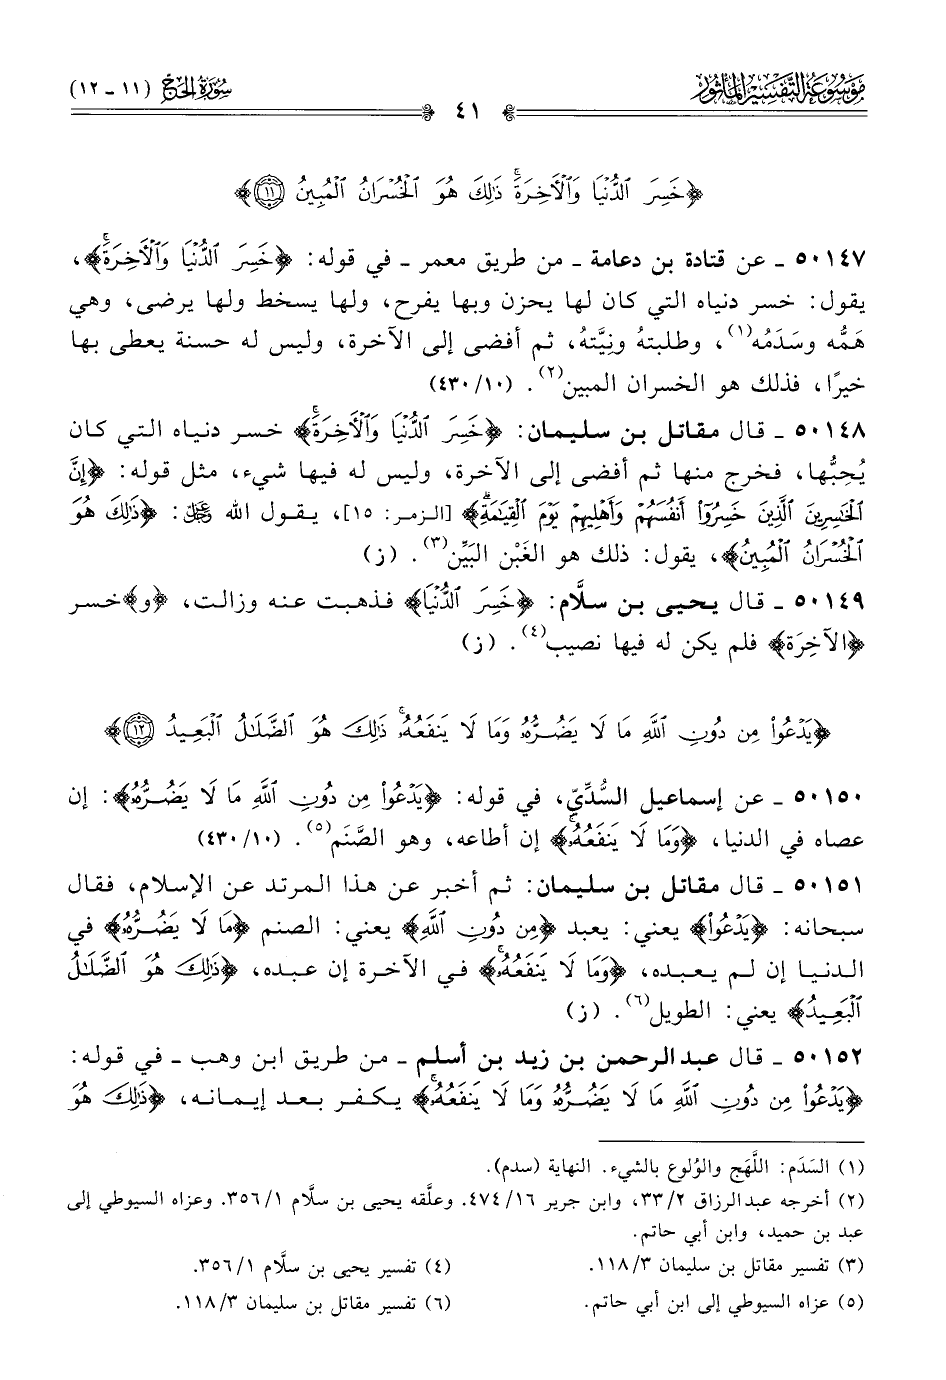 موسوعة التفسير المأثور
سورة الحج (١١ - ١٢)
٤١
﴿خَسِرَ ٱلدُّنۡيَا وَٱلۡأٓخِرَةَۚ ذَٰلِكَ هُوَ ٱلۡخُسۡرَانُ ٱلۡمُبِينُ ١١﴾
٥٠١٤٧ ـ عن قتادة بن دعامة ـ من طريق معمر ـ في قوله: ﴿خَسِرَ ٱلدُّنۡيَا وَٱلۡأٓخِرَةَۚ﴾،
يقول: خسر دنياه التي كان لها يحزن وبها يفرح، ولها يسخط ولها يرضى، وهي
هَمُّه وسَدَمُه(١)، وطلبتهُ ونِيَّتهُ، ثم أفضى إلى الآخرة، وليس له حسنة يعطى بها
خيرًا، فذلك هو الخسران المبين(٢). (٤٣٠/١٠)
٥٠١٤٨ ـ قال مقاتل بن سليمان: ﴿خَسِرَ ٱلدُّنۡيَا وَٱلۡأٓخِرَةَۚ﴾ خسر دنياه التي كان
يُحِبُّها، فخرج منها ثم أفضى إلى الآخرة، وليس له فيها شيء، مثل قوله: ﴿إِنَّ
ٱلۡخَٰسِرِينَ ٱلَّذِينَ خَسِرُوٓاْ أَنفُسَهُمۡ وَأَهۡلِيهِمۡ يَوۡمَ ٱلۡقِيَٰمَةِۗ﴾ [الزمر: ١٥]، يقول الله ﷻ: ﴿ذَٰلِكَ هُوَ
ٱلۡخُسۡرَانُ ٱلۡمُبِينُ﴾، يقول: ذلك هو الغَبْن البَيِّن(٣). (ز)
٥٠١٤٩ ـ قال يحيى بن سلَّام: ﴿خَسِرَ ٱلدُّنۡيَا﴾ فذهبت عنه وزالت، ﴿و﴾خسر
﴿الآخِرَة﴾ فلم يكن له فيها نصيب(٤). (ز)
﴿يَدۡعُواْ مِن دُونِ ٱللَّهِ مَا لَا يَضُرُّهُۥ وَمَا لَا يَنفَعُهُۥۚ ذَٰلِكَ هُوَ ٱلضَّلَٰلُ ٱلۡبَعِيدُ ١٢﴾
٥٠١٥٠ ـ عن إسماعيل السُّدِّيِّ، في قوله: ﴿يَدۡعُواْ مِن دُونِ ٱللَّهِ مَا لَا يَضُرُّهُۥ﴾: إن
عصاه في الدنيا، ﴿وَمَا لَا يَنفَعُهُۥۚ﴾ إن أطاعه، وهو الصَّنَم(٥). (٤٣٠/١٠)
٥٠١٥١ ـ قال مقاتل بن سليمان: ثم أخبر عن هذا المرتد عن الإسلام، فقال
سبحانه: ﴿يَدۡعُواْ﴾ يعني: يعبد ﴿مِن دُونِ ٱللَّهِ﴾ يعني: الصنم ﴿مَا لَا يَضُرُّهُۥ﴾ في
الدنيا إن لم يعبده، ﴿وَمَا لَا يَنفَعُهُۥۚ﴾ في الآخرة إن عبده، ﴿ذَٰلِكَ هُوَ ٱلضَّلَٰلُ
ٱلۡبَعِيدُ﴾ يعني: الطويل(٦). (ز)
٥٠١٥٢ ـ قال عبدالرحمن بن زيد بن أسلم ـ من طريق ابن وهب ـ في قوله:
﴿يَدۡعُواْ مِن دُونِ ٱللَّهِ مَا لَا يَضُرُّهُۥ وَمَا لَا يَنفَعُهُۥۚ﴾ يكفر بعد إيمانه، ﴿ذَٰلِكَ هُوَ
(١) السَدَم: اللَّهَج والوُلوع بالشيء. النهاية (سدم).
(٢) أخرجه عبدالرزاق ٣٣/٢، وابن جرير ٤٧٤/١٦. وعلَّقه يحيى بن سلَّام ٣٥٦/١. وعزاه السيوطي إلى
عبد بن حميد، وابن أبي حاتم.
(٣) تفسير مقاتل بن سليمان ١١٨/٣.
(٤) تفسير يحيى بن سلَّام ٣٥٦/١.
(٥) عزاه السيوطي إلى ابن أبي حاتم.
(٦) تفسير مقاتل بن سليمان ١١٨/٣.